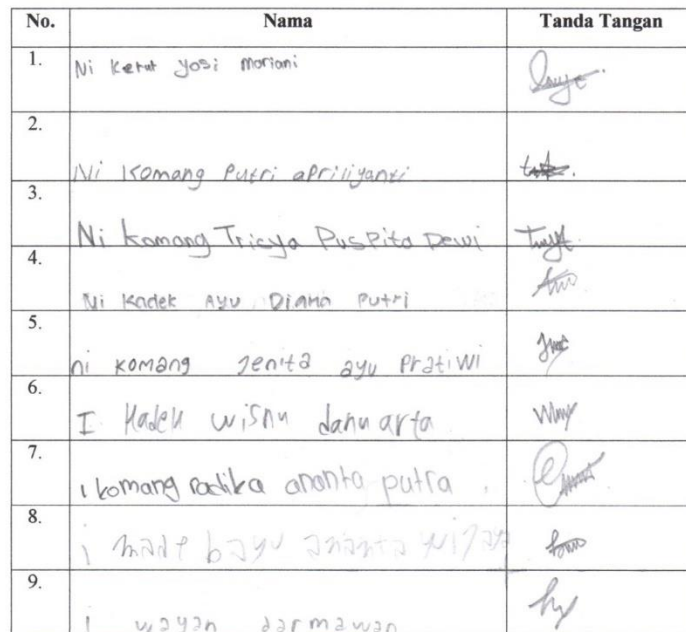 No. Nama Tanda Tangan
1. Ni Ketut Yosi moriani
2. Ni Komang Putri apriliyanti
3. Ni komang Tricya Puspita Dewi
4. Ni Kadek Ayu Diana Putri
5. ni komang Jenita ayu Pratiwi
6. I Kadek wisnu danu arta
7. i komang radika ananta putra
8. i made bayu ananta wijaya
9. i wayan darmawan